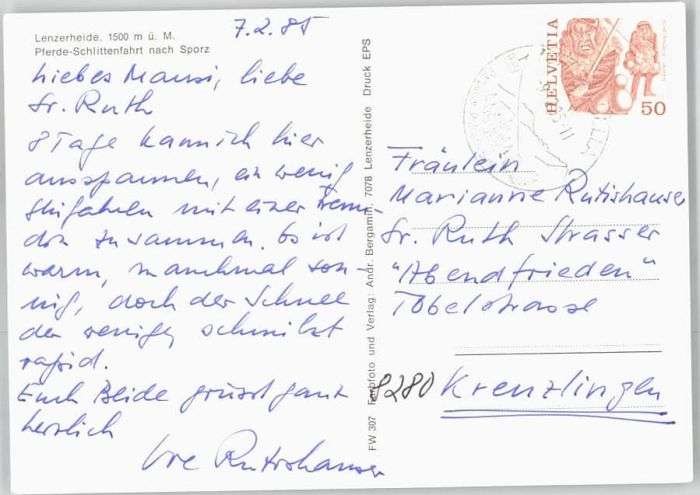 Lenzerheide, 1500 m ü. M.
Pferde-Schlittenfahrt nach Sporz
7.2.85
Liebes Mausi, liebe
Sr. Ruth
8 Tage kann ich hier
ausspannen, ein wenig
skifahren mit einer Freun-
din zusammen. Es ist
warm, manchmal son-
nig, doch der Schnee
der wenige, schmilzt
rapid.
Euch Beide grüsst ganz
herzlich
Rutishauser
FW 307 Farbfoto und Verlag: Andr. Bergamin, 7078 Lenzerheide Druck EPS
HELVETIA
50
Fräulein
Marianne Rutishauser
Sr. Ruth Strasser
"Abendfrieden"
Tobelstrasse
8280 Kreuzlingen